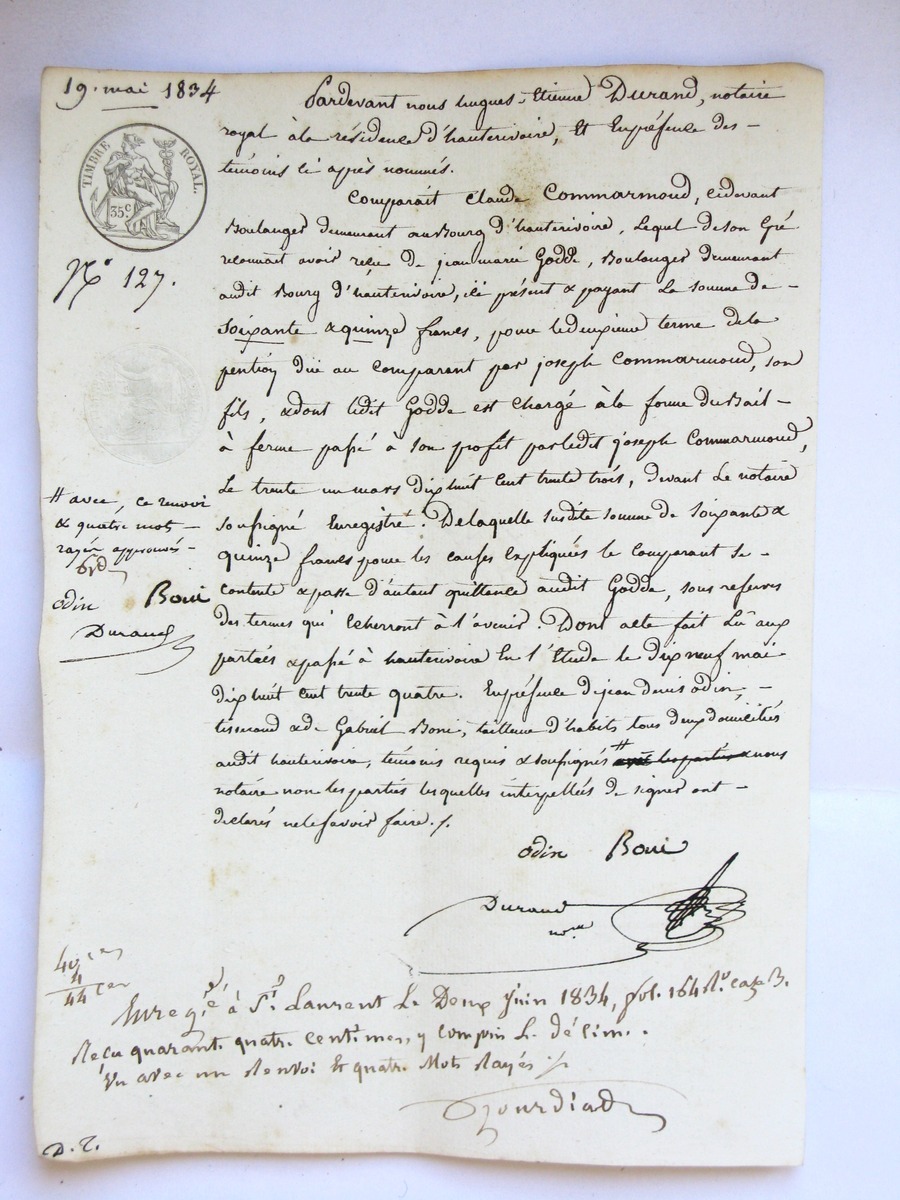 19. mai 1834
TIMBRE ROYAL.
35c
N° 127.
Pardevant nous hugues-Etienne Durand, notaire
royal à la résidence d'hauterivoire, Et En présence des-
témoins ci après nommés.
Comparait Claude Commarmond, cidevant
Boulanger demeurant au Bourg d'hauterivoire, Lequel de son Gré
reconnait avoir reçu de jean marie Godde, Boulanger demeurant
audit Bourg d'hauterivoire, ici présent & payant La somme de-
Soixante & quinze francs, pour le deuxieme terme de la
pention düe au Comparant par joseph Commarmond, son
fils, & dont ledit Godde est Chargé à la forme du Bail-
à ferme passé à son profit par ledit joseph Commarmond,
Le trente un mars dix huit Cent trente trois, devant Le notaire
soussigné Enregistré. De laquelle susdite somme de soixante &
quinze francs pour les causes expliquées le Comparant se-
contente & passe d'autant quittance audit Godde, sous reserves
des termes qui Echerront à l'avenir. Dont acte fait Lû aux
parties & passé à hauterivoire En l'Etude le dix neuf mai
dix huit cent trente quatre. En présence de jean denis odin,-
tisserand & de Gabriel Boni, tailleur d'habits tous deux domiciliés
audit hauterivoire, témoins requis & soussignés # avec les parties & nous
notaire non les parties lesquelles interpellées de signer ont-
declarés ne le savoir faire ./.
# avec, ce renvoi
& quatre mots-
rayés approuvés-
odin Boni
Durand
odin Boni
Durand
nore
40 cen
4
44 cen
Enregré à St. Laurent Le Deux Juin 1834, fol. 164 Ro. case 3.
Reçu quarant. quatr. centimes, y compris L. décim..
Vu avec un Renvoi Et quatr. Mots Rayés ./.
D. T.